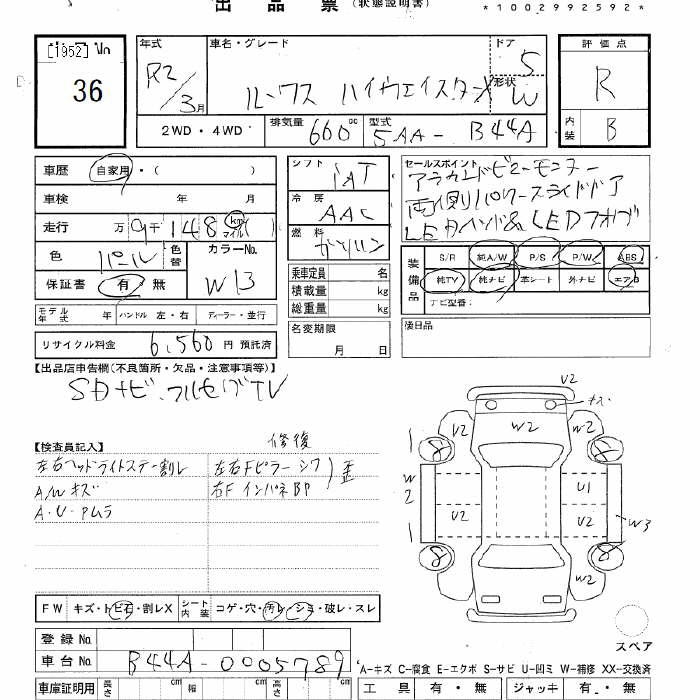 出品票 (状態説明書)
*1002992592*
[1952] No
36
年式 R2/3月
車名・グレード ルークス ハイウェイスターX
ドア 5
形状 W
評価点 R
内装 B
2WD・4WD
排気量 660 cc
型式 5AA-B44A
車歴 自家用・( )
車検 年 月
走行 万9千148 km マイル( )
色 パール 色替
カラーNo. W13
保証書 有 無
モデル年式 年 ハンドル 左・右 ディーラー・並行
リサイクル料金 6,560円 預託済
シフト IAT
冷房 AAC
燃料 ガソリン
乗車定員 名
積載量 kg
総重量 kg
名変期限 月 日
セールスポイント
アラウンドビューモニター
両側パワースライドドア
LED LEDフォグ
装備品 S/R 純A/W P/S P/W ABS
純TV 純ナビ 革シート 外ナビ エアB
ナビ型番:
後日品
【出品店申告欄(不良箇所・欠品・注意事項等)】
SDナビ.フルセグTV
【検査員記入】 修復
左右ヘッドライトステー割レ
左右Fピラー シワ 歪
A/Wキズ
右F インパネBP
A・U・Pムラ
U2
キズ
U2 W2 W2
W2 U1
U2 U2 W3
W2
スペア
FW キズ・トビ石・割レX シート内装 コゲ・穴・汚レ・シミ・破レ・スレ
登録No.
車台No. B44A-0005789
A-キズ C-腐食 E-エクボ S-サビ U-凹ミ W-補修 XX-交換済
車庫証明用 長さ cm 幅 cm 高さ cm
工具 有・無 ジャッキ 有・無